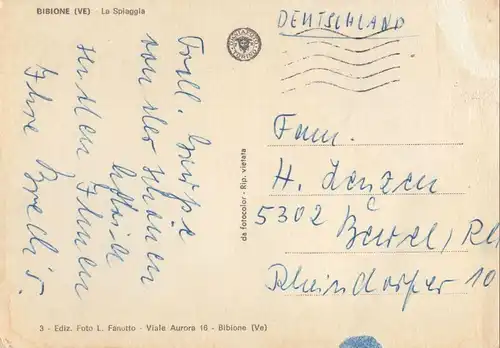 BIBIONE (VE) - La Spiaggia
Frdl. Grüße
von der schönen
Adria
senden Ihnen
Ihre
DEUTSCHLAND
Fam.
H. Lenzen
5302 Beuel, Rh
Rheindorfer 10
da fotocolor - Rip. vietata
3 - Ediz. Foto L. Fanutto - Viale Aurora 16 - Bibione (Ve)